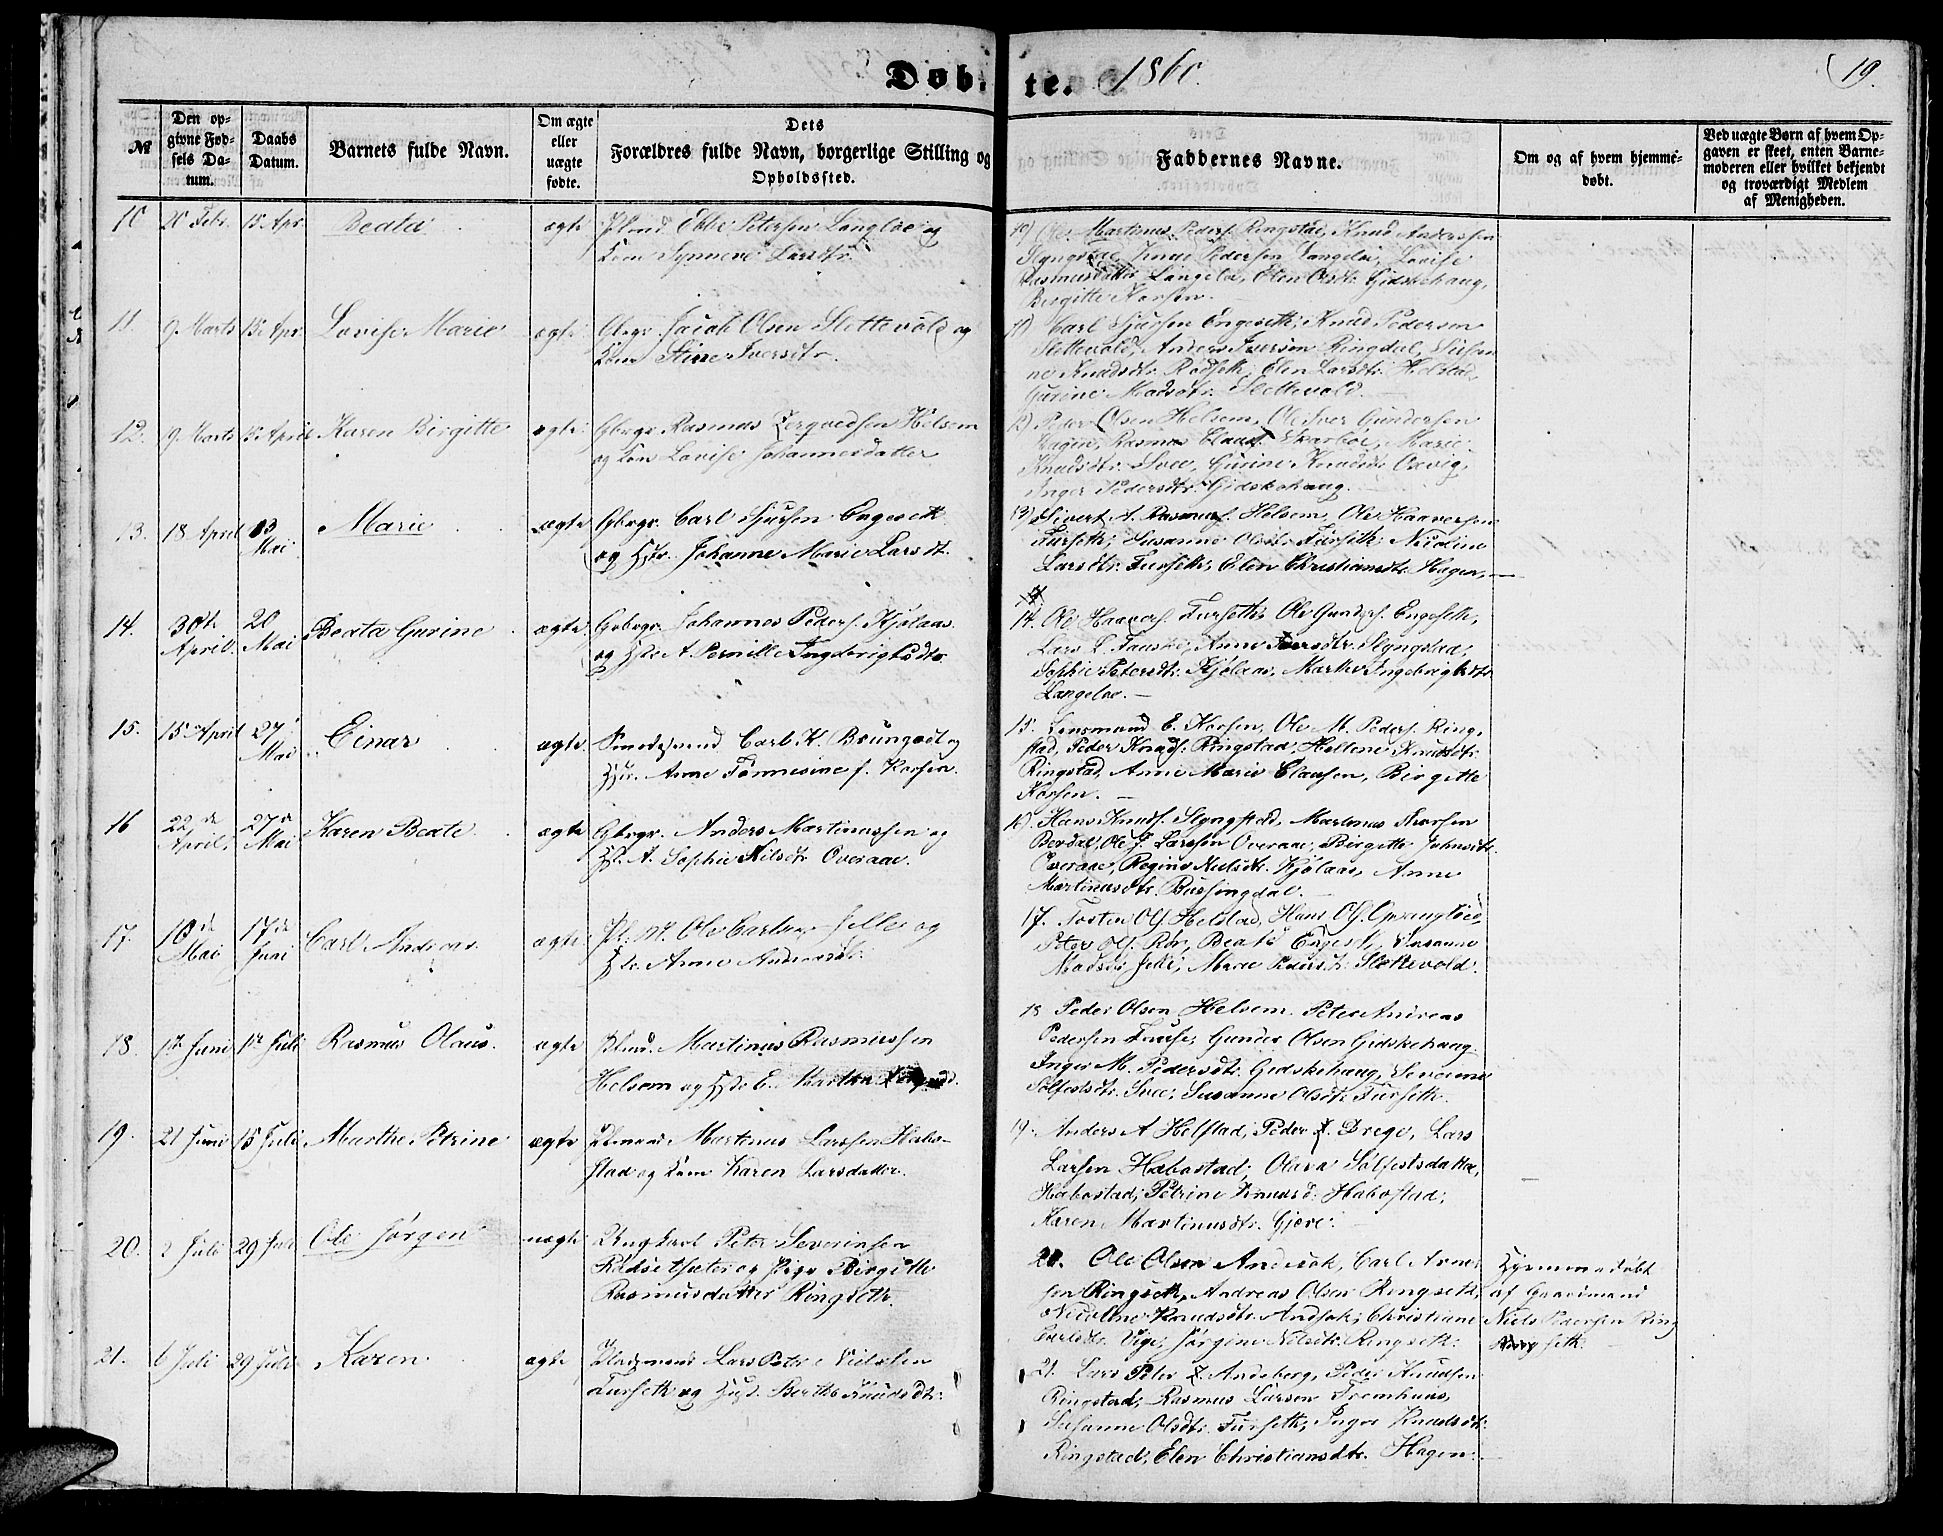 Døbte. 1860.
19.
№
Den opgivne Fødsels Datum.
Daabs Datum.
Barnets fulde Navn.
Om ægte eller uægte fødte.
Dets Forældres fulde Navn, borgerlige Stilling og Opholdssted.
Faddernes Navne.
Om og af hvem hjemmedøbt.
Ved uægte Børn af hvem Opgaven er skeet, enten Barnemoderen eller hvilket bekjendt og troværdigt Medlem af Menigheden.
10 20 Febr. 15 Apr. Beata ægte Plmd. Ebbe Petersen Langløe og
Kone Synneve Larsdtr.
10) Ole Martinus Peders. Ringstad, Knud Anderssen
Slyngstad, Knud Pedersen Langeloe, Lovise
Rasmusdatter Langeloe, Elen Olsdtr. Gidskehaug,
Birgitte Korsen.
11. 9 Marts 15 Apr. Lovise Marie ægte Gbrgr. Jacob Olsen Slettevold og
Kone Stine Iversdtr.
11) Carl Sjursen Engeseth; Knud Pedersen
Slettevold, Anders Iversen Ringdal, Susan
ne Knudsdtr. Rødseth, Elen Larsdtr. Helstad,
Gurine Madsdtr. Slettevold.
12. 9 Marts 15 April Karen Birgitte ægte Gbrgr. Rasmus Torquedsen Helsem
og Kone Lovise Johannesdatter
12) Peder Olsen Helsem, Ole Iver Gundersen
Hagen, Rasmus Claus. Skarboe, Marie
Knudsdtr. Svee, Gurine Knudsdtr. Oxvig,
Inger Pedersdtr. Gidskehaug.
13. 18 April 13 Mai Marie ægte Gbrgr. Carl Sjursen Engeseth
og Hstr. Johanne Marie Larsdt.
13) Sivert A. Rasmus. Helsem, Ole Haaversen
Furseth; Susanne Olsdtr. Furseth; Nicoline
Larsdtr. Furseth; Elen Christiansdtr. Hagen.
14. 30te April 20 Mai Beata Gurine ægte Gbrgr. Johannes Peders. Kjølaas
og Hstr. A. Pernille Ingebrigtsdtr.
14. Ole Haavers. Furseth; Ole Gunders. Engeseth,
Lars L. Fauske, Anne Iversdtr. Slyngstad,
Sophie Petersdtr. Kjølaas, Marthe Ingebrigtsdtr.
Langeloe.
15. 15 April 27 Mai Einar ægte Smedsvend Carl K. Brungodt og
Hstr. Anne Tomesine f. Korsen.
15. Lensmand E. Korsen, Ole M. Peders. Ring-
stad, Peder Knuds. Ringstad, Hellene Knudsdtr.
Ringstad, Anne Marie Clausen, Birgitte
Korsen.
16 22de April 27de Mai Karen Beate ægte Gbrgr. Anders Martinussen og
Hst. A. Sophie Nilsdtr. Overaae.
16. Hans Knuds. Slyngstad, Martinus Iversen
Berdal, Ole J. Larssen Overaae, Birgitte Johnsdtr.
Overaae, Regine Nielsdtr. Kjølaas, Anne
Martinusdtr. Bursingdal.
17. 10de Mai 17de Juni Carl Andreas ægte Pl. M. Ole Carlsen Jelle og
Hstr. Anne Andersdtr.
17. Tosten Ols. Helstad, Hans Ols. Opvangløed,
Peter Ols. Rør, Beate Engeset, Susanne
Madsdtr. Jelle, Marie Pedersdtr. Slettevold.
18. 12 Juni 12 Juli Rasmus Olaus. ægte Plmd. Martinus Rasmussen
Helsem og Hstr. E. Martha
18 Peder Olsen Helsem. Peter Andreas
Pedersen Fauske, Gunder Olsen Gidskehaug
Inger M. Pedersdtr. Gidskehaug, Severine
Solfestsdtr. Svee; Susanne Olsdtr. Furseth.
19. 21 Juni 15 Juli Marthe Petrine ægte Plmand Martinus Larssen Habo-
stad og Kone Karen Larsdatter.
19. Anders A Helstad, Peder Drege, Lars
Larsen Habostad, Olava Solfestsdatter
Habostad; Petrine Knudsd. Habostad;
Karen Martinusdtr. Gjere.
20. 2 Juli 29 Juli Ole Jørgen uægte Ungkarl Peter Severinsen
Rødsetsæter og Pige Birgitte
Rasmusdatter Ringseth.
20. Ole Olsen Andestok, Carl Arne
sen Ringseth, Andreas Olsen Ringseth,
Nicoline Knudsdtr. Andstok; Christiane
Carlsdtr. Vige, Jørgine Nilsdtr. Ringseth.
Hjemmedøbt
af Gaardmand
Niels Pedersen Ring
seth.
21. 6 Juli 29 Juli Karen ægte Pladsmand Lars Petr. Nielsen
Furseth og Hust. Berthe Knudsdtr.
21. Lars Peter Andsberg, Peder Knudsen
Ringstad, Rasmus Larsen Fremhuus,
Susanne Olsdtr. Furseth, Inger Knudsdtr.
Ringstad; Elen Christiansdtr. Hagen.